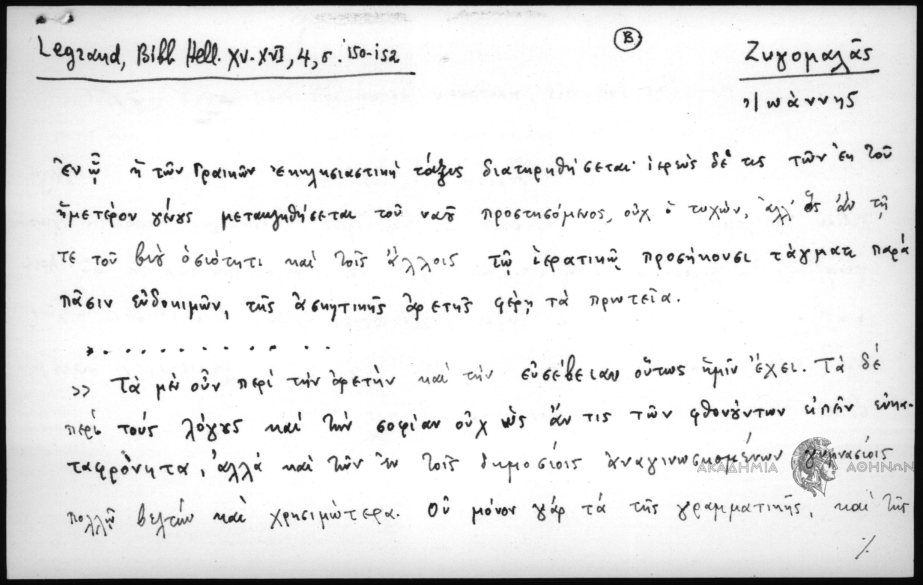 Legrand, Bibl Hell. XV-XVI, 4, σ. 150-152
Β
Ζυγομαλᾶς
Ἰωάννης
ἐν ᾧ ἡ τῶν Γραικῶν ἐκκλησιαστικὴ τάξις διατηρηθήσεται· ἱερεὺς δέ τις τῶν ἐκ τοῦ
ἡμετέρου γένους μετακληθήσεται τοῦ ναοῦ προστησόμενος, οὐχ ὁ τυχών, ἀλλ' ὃς ἂν τῇ
τε τοῦ βίου ὁσιότητι καὶ τοῖς ἄλλοις τῷ ἱερατικῷ προσήκουσι τάγματι παρὰ
πᾶσιν εὐδοκιμῶν, τῆς ἀσκητικῆς ἀρετῆς φέρῃ τὰ πρωτεῖα.
. . . . . . . . . . . .
>> Τὰ μὲν οὖν περὶ τὴν ἀρετὴν καὶ τὴν εὐσέβειαν οὕτως ἡμῖν ἔχει. Τὰ δὲ
περὶ τοὺς λόγους καὶ τὴν σοφίαν οὐχ ὡς ἄν τις τῶν φθονούντων εἰπεῖν εὐκα-
ταφρόνητα, ἀλλὰ καὶ τῶν ἐν τοῖς δημοσίοις ἀναγινωσκομένων γυμνασίοις
πολλῷ βελτίω καὶ χρησιμώτερα. Οὐ μόνον γὰρ τὰ τῆς γραμματικῆς, καὶ τῆς
ΑΚΑΔΗΜΙΑ ΑΘΗΝΩΝ
%